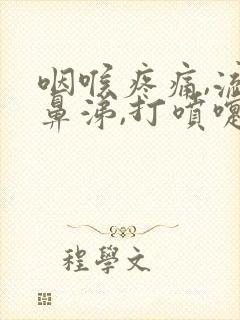 咽喉疼痛,流
鼻涕,打噴嚏
程學文